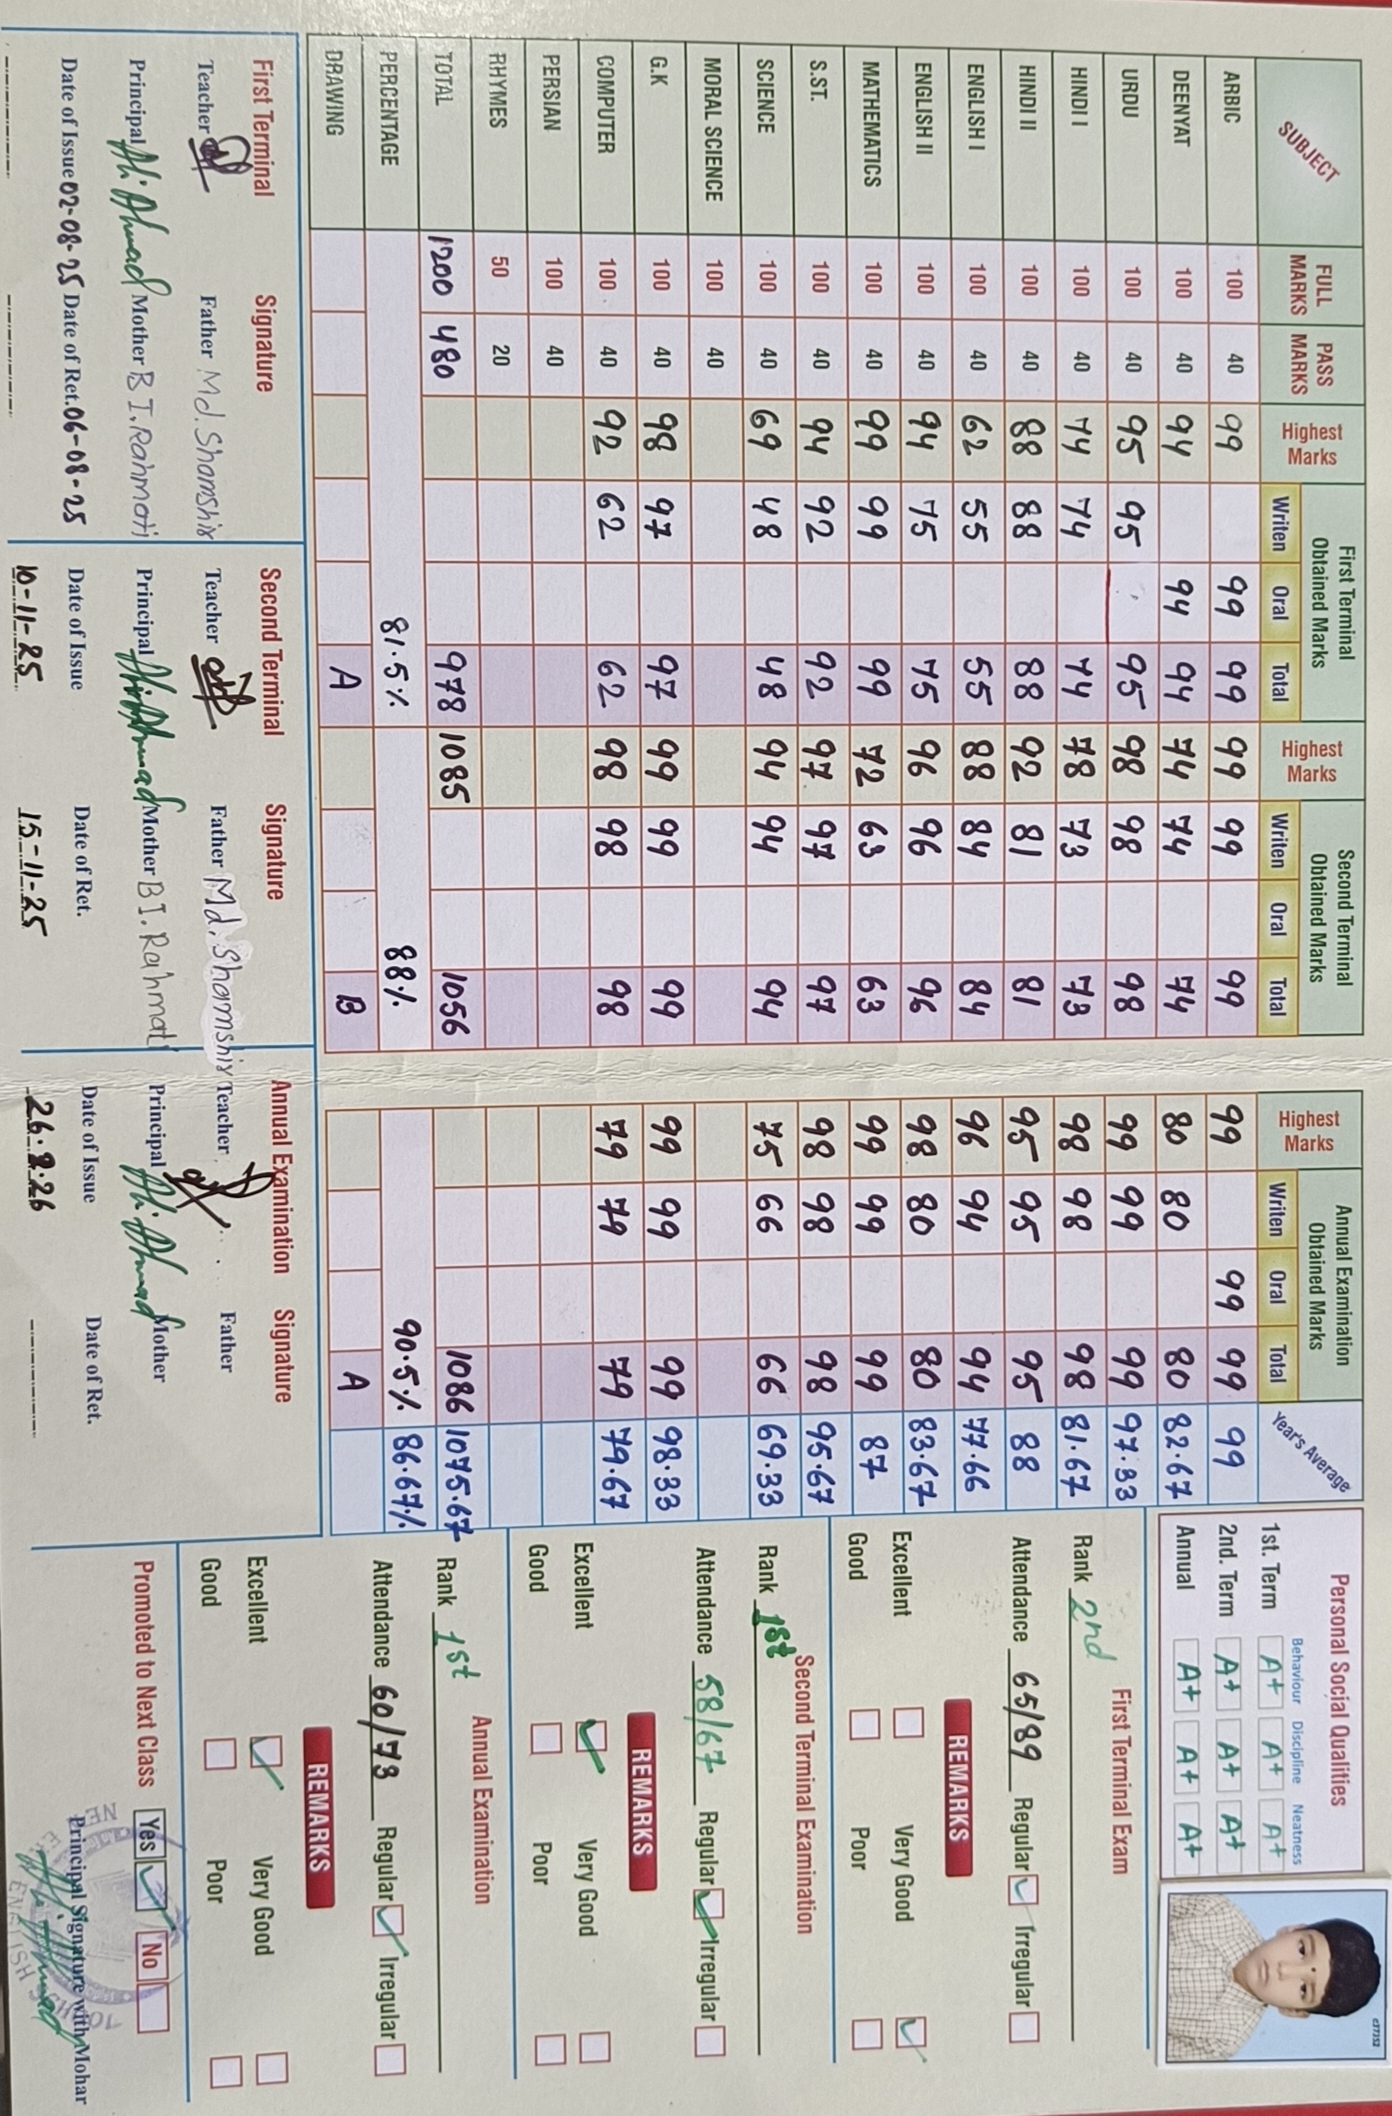 SUBJECT FULL MARKS PASS MARKS Highest Marks First Terminal Obtained Marks Writen Oral Total Highest Marks Second Terminal Obtained Marks Writen Oral Total Highest Marks Annual Examination Obtained Marks Writen Oral Total Year's Average
ARBIC 100 40 99 99 99 99 99 99 99 99 99 99
DEENYAT 100 40 94 94 94 74 74 74 80 80 80 82.67
URDU 100 40 95 95 95 98 98 98 99 99 99 97.33
HINDI I 100 40 74 74 74 78 73 73 98 98 98 81.67
HINDI II 100 40 88 88 88 92 81 81 95 95 95 88
ENGLISH I 100 40 62 55 55 88 84 84 96 94 94 77.66
ENGLISH II 100 40 94 75 75 96 96 96 98 80 80 83.67
MATHEMATICS 100 40 99 99 99 72 63 63 99 99 99 87
S.ST. 100 40 94 92 92 97 97 97 98 98 98 95.67
SCIENCE 100 40 69 48 48 94 94 94 75 66 66 69.33
MORAL SCIENCE 100 40
G.K 100 40 98 97 97 99 99 99 99 99 99 98.33
COMPUTER 100 40 92 62 62 98 98 98 79 79 79 79.67
PERSIAN 100 40
RHYMES 50 20
TOTAL 1200 480 978 1085 1056 1086 1075.67
PERCENTAGE 81.5% 88% 90.5% 86.67%
DRAWING A B A
First Terminal Signature
Teacher Father Md. Shamshir
Principal Ali Ahmad Mother B I. Rahmati
Date of Issue 02-08-25 Date of Ret. 06-08-25
Second Terminal Signature
Teacher Father Md. Shamshir
Principal Ali Ahmad Mother B I. Rahmati
Date of Issue Date of Ret.
10-11-25 15-11-25
Annual Examination Signature
Teacher Father
Principal Ali Ahmad Mother
Date of Issue Date of Ret.
Personal Social Qualities
Behaviour Discipline Neatness
1st. Term A+ A+ A+
2nd. Term A+ A+ A+
Annual A+ A+ A+
c37352
First Terminal Exam
Rank 2nd
Attendance 65/89 Regular Irregular
REMARKS
Excellent Very Good
Good Poor
Second Terminal Examination
Rank 1st
Attendance 58/67 Regular Irregular
REMARKS
Excellent Very Good
Good Poor
Annual Examination
Rank 1st
Attendance 60/73 Regular Irregular
REMARKS
Excellent Very Good
Good Poor
Promoted to Next Class Yes No
Principal Signature with Mohar
Ali Ahmad
ENGLISH